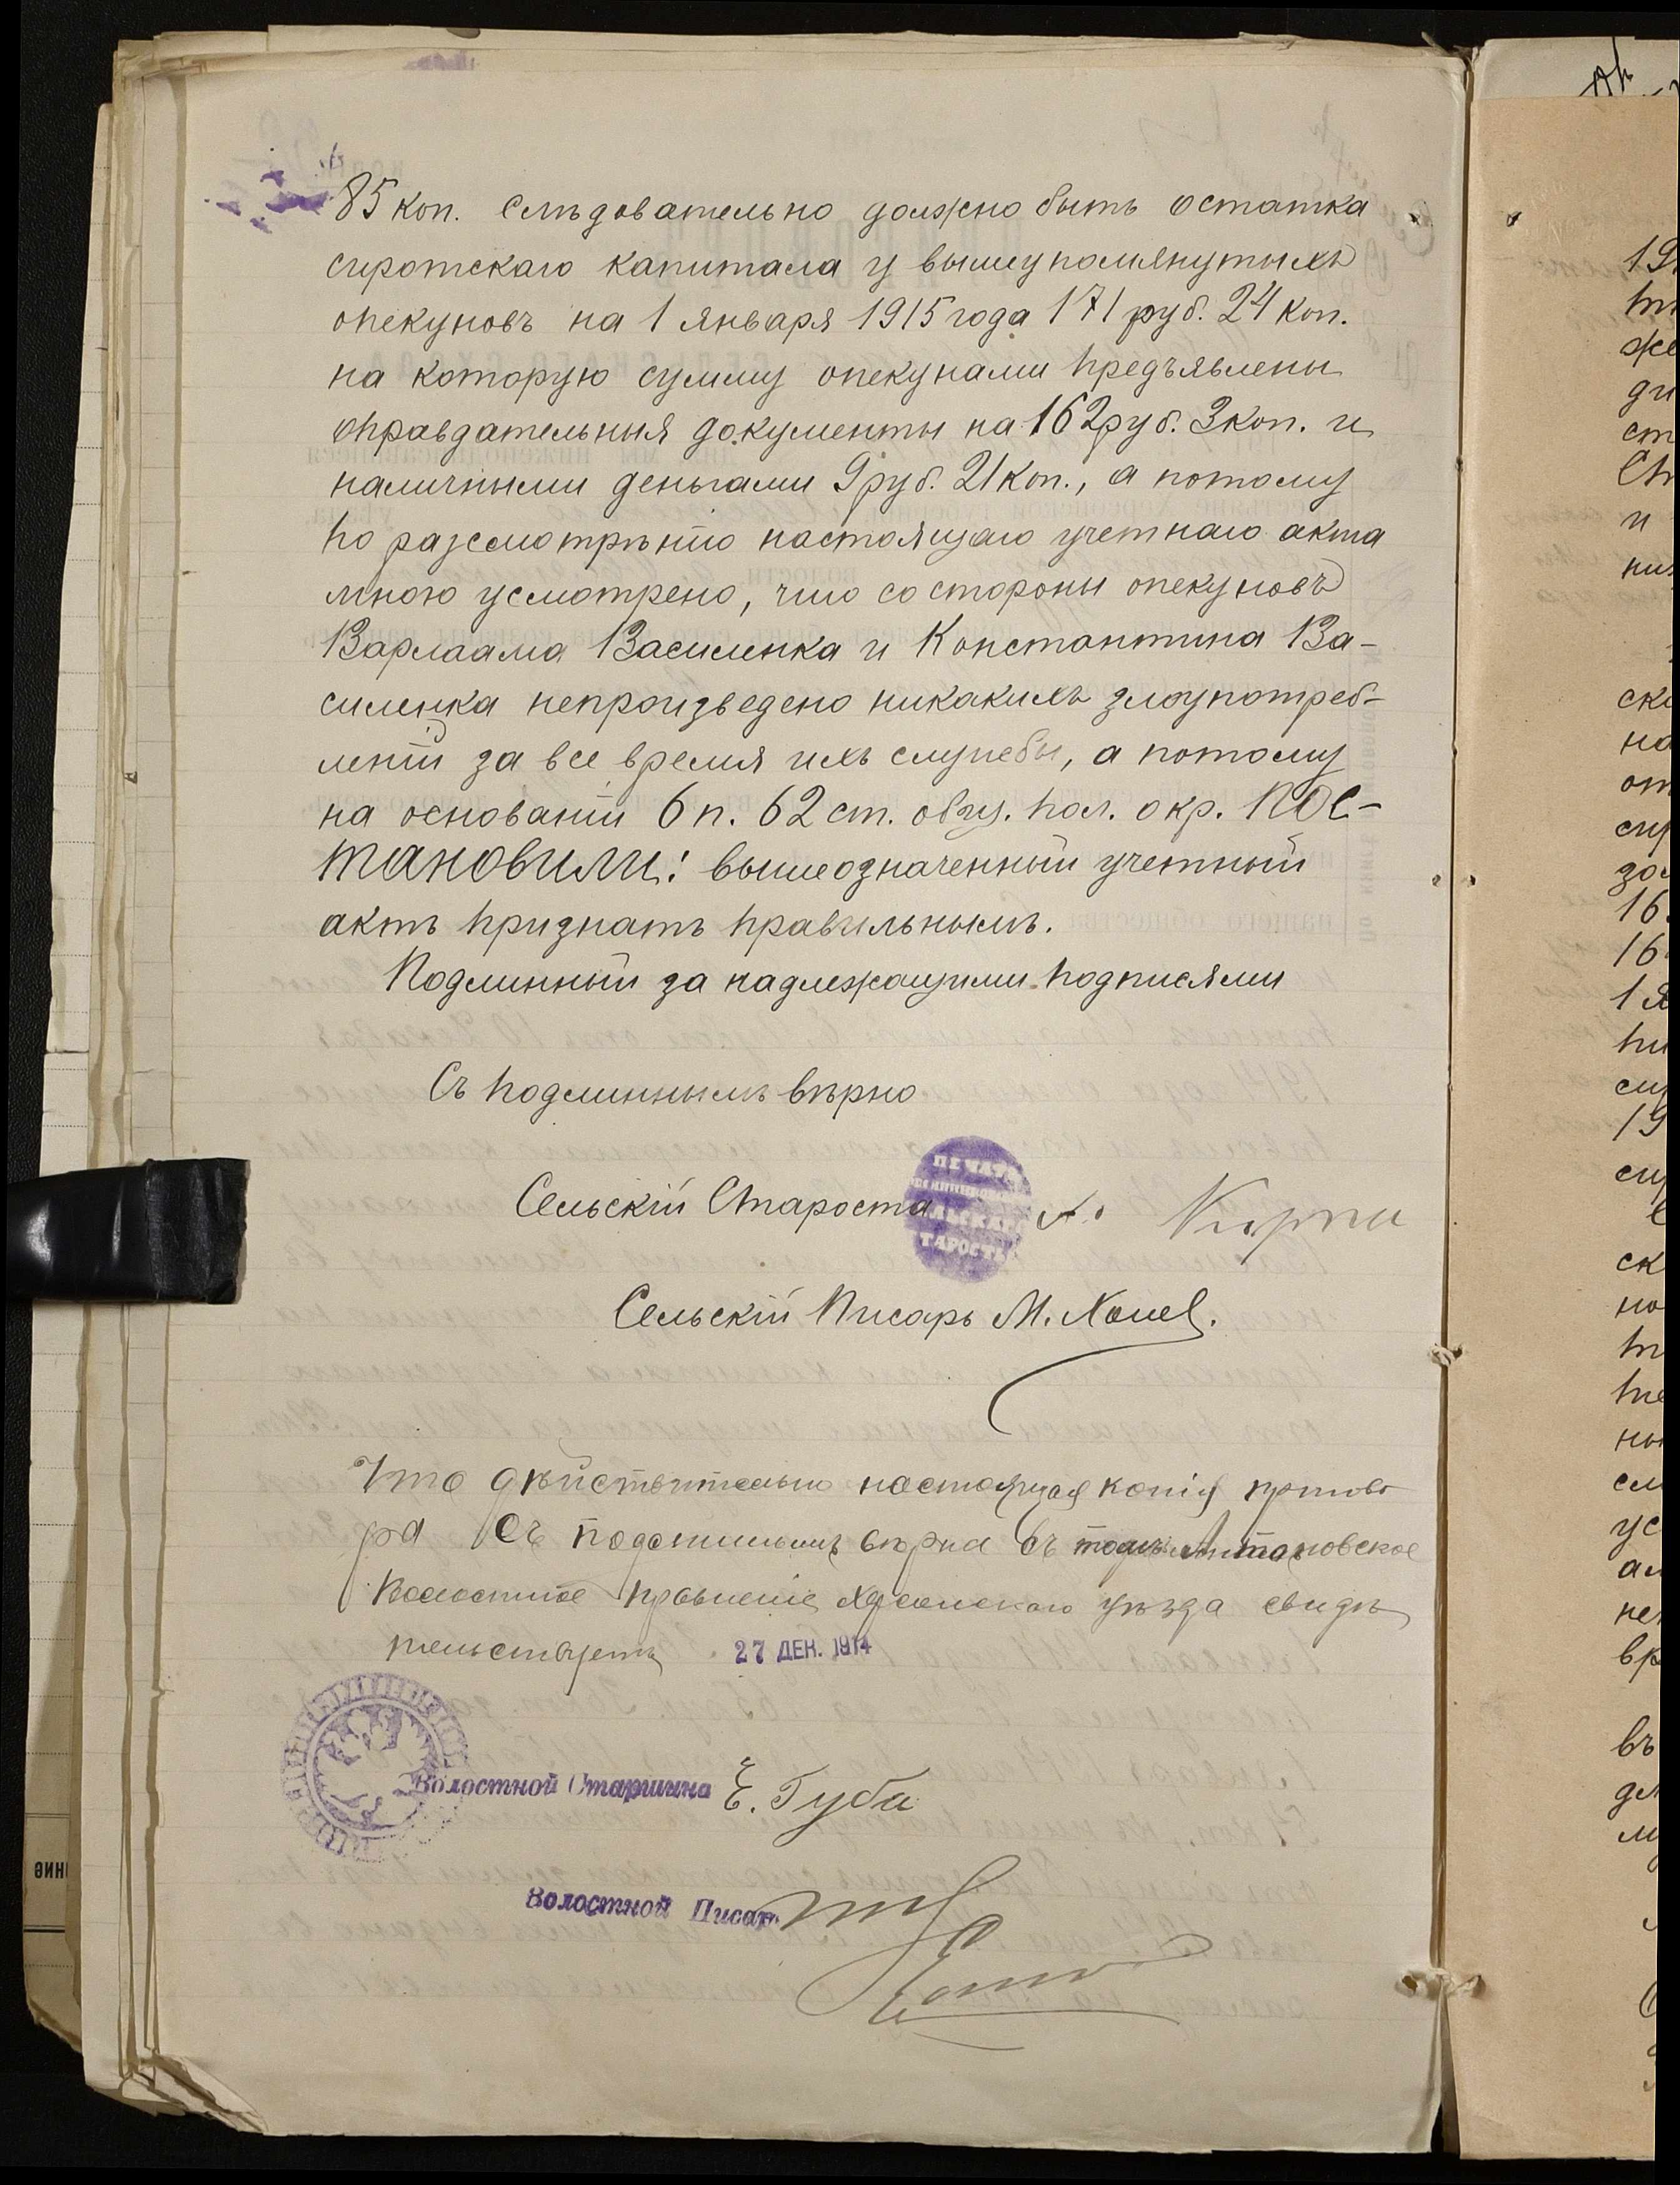 85 коп. слѣдовательно должно быть остатка
сиротскаго капитала у вышеупомянутыхъ
опекуновъ на 1 января 1915 года 171 руб. 24 коп.
на которую сумму опекунами предъявлены
оправдательныя документы на 162 руб. 3 коп. и
наличными деньгами 9 руб. 21 коп., а потому
по разсмотрѣнію настоящаго учетнаго акта
мною усмотрено, что со стороны опекуновъ
Варлаама Василенка и Константина Ва-
силенка непроизведено никакихъ злоупотреб-
леній за все время ихъ службы, а потому
на основаніи 6 п. 62 ст. общ. пол. о кр. Пос-
тановили: вышеозначенный учетный
актъ признать правильнымъ.
Подлинный за надлежащими подписями
Съ подлиннымъ вѣрно
Сельскій Староста
ПЕЧАТЬ
Сельскій Писарь М.
Что дѣйствительно настоящая копія пригово
ра съ подлиннымъ вѣрна въ томъ
Волостное Правленіе Херсонскаго уѣзда свидѣ
тельствуетъ 27 ДЕК. 1914
Волостной Старшина Е. Губа
Волостной Писарь